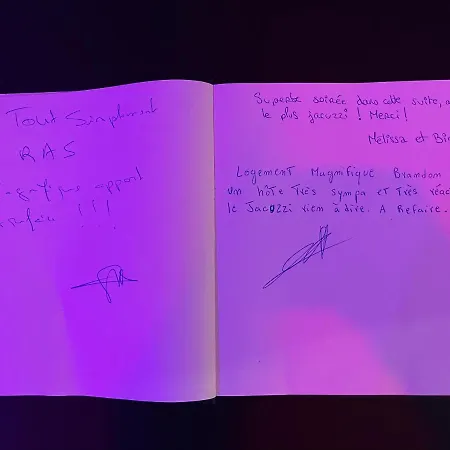 Tout Simplement
RAS
appart
!!!
Superbe soirée dans cette suite,
le plus jacuzzi ! Merci !
Mélissa et
Logement Magnifique Brandon
un hôte très sympa et très
le Jacuzzi rien à dire. A Refaire.